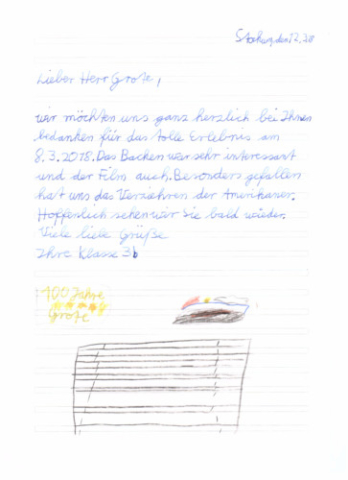 Lieber Herr Grote,
wir möchten uns ganz herzlich bei Ihnen
bedanken für das tolle Erlebnis am
8.3.2018. Das Backen war sehr interessant
und der Film auch. Besonders gefallen
hat uns das Verziehren der Amerikaner.
Hoffenlich sehen wir Sie bald wieder.
Viele liebe Grüße
Ihre Klasse 3b
100 Jahre
Grote